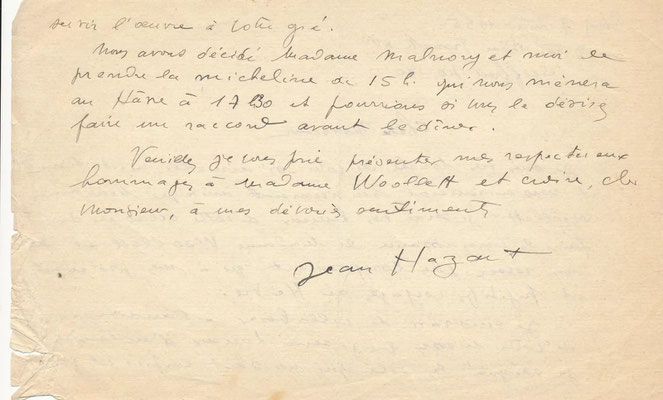 servir l'œuvre à votre gré.
Nous avons décidé Madame Malnory et moi de
prendre la micheline de 15 h. qui nous mènera
au Hâvre à 17 h 30 et pourrions si vous le désirez
faire un raccord avant le dîner.
Veuillez je vous prie présenter mes respectueux
hommages à Madame Woollett et croire, cher
Monsieur, à mes dévoués sentiments
Jean Hazart